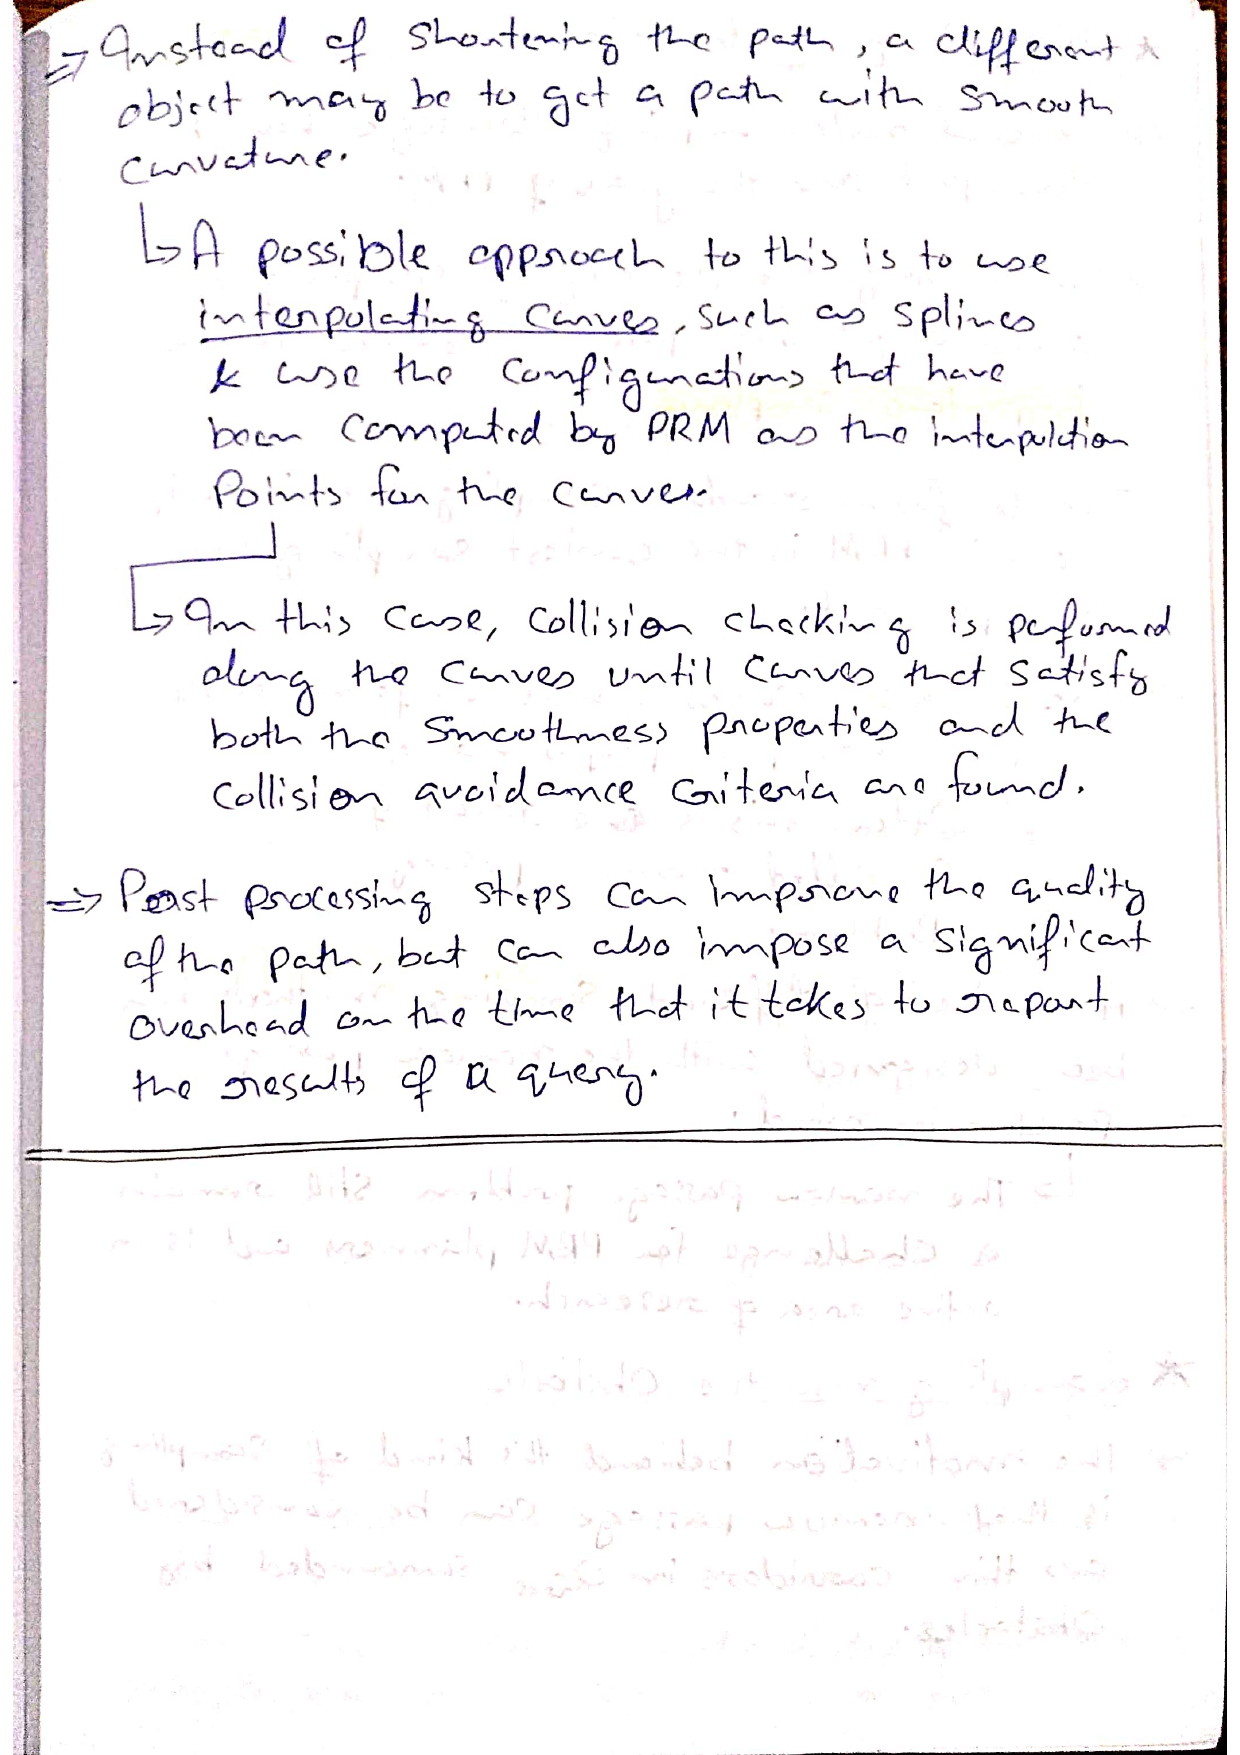 ⇒ Instead of shortening the path, a different
object may be to get a path with smooth
curvature.
↳ A possible approach to this is to use
interpolating curves, such as splines
& use the configurations that have
been computed by PRM as the interpolation
Points for the curves.
↳ In this case, collision checking is performed
along the curves until curves that satisfy
both the smoothness properties and the
collision avoidance criteria are found.
⇒ Post processing steps can improve the quality
of the path, but can also impose a significant
overhead on the time that it takes to report
the results of a query.